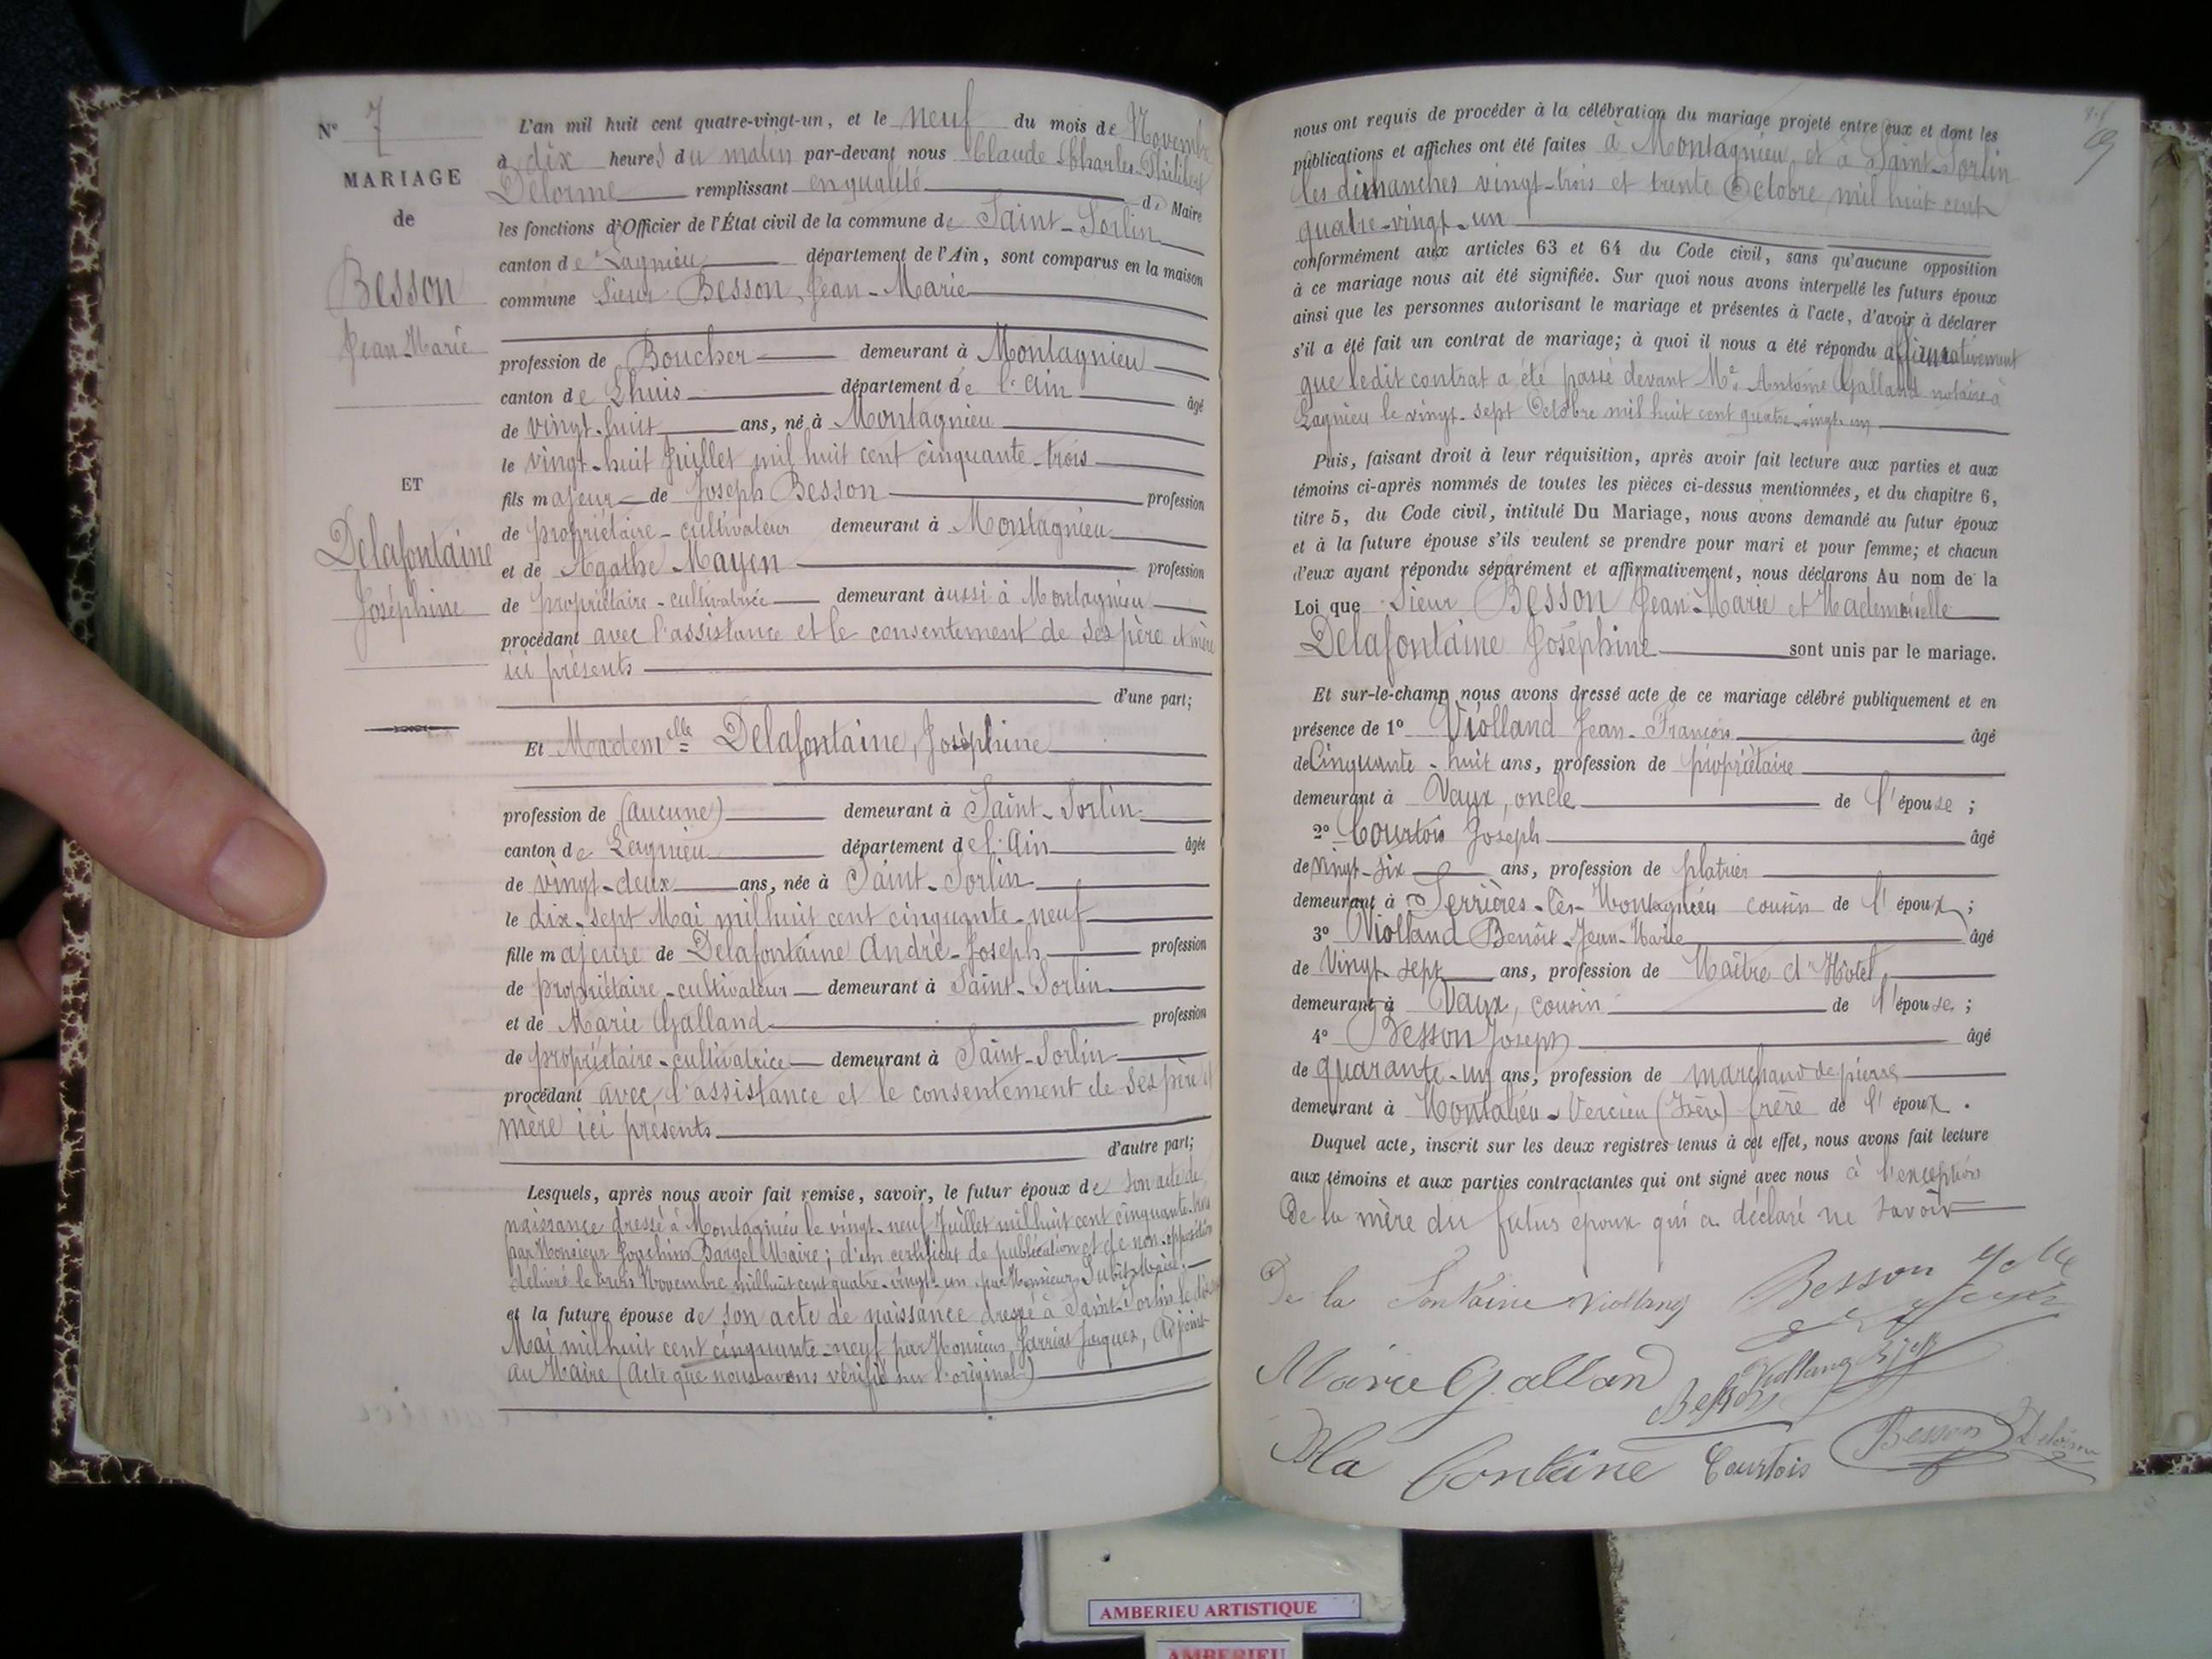 N° 7
MARIAGE
de
Besson
Jean-Marie
ET
Delafontaine
Joséphine
L'an mil huit cent quatre-vingt-un, et le neuf du mois de Novembre
à dix heures du matin par-devant nous Claude Charles-Philibert
Delorme remplissant en qualité de Maire
les fonctions d'Officier de l'État civil de la commune de Saint-Sorlin
canton de Lagnieu département de l'Ain, sont comparus en la maison
commune Sieur Besson, Jean-Marie
profession de Boucher demeurant à Montagnieu
canton de Lhuis département de l'Ain âgé
de vingt-huit ans, né à Montagnieu
le vingt-huit Juillet mil huit cent cinquante-trois
fils majeur de Joseph Besson profession
de propriétaire-cultivateur demeurant à Montagnieu
et de Agathe Mayen profession
de propriétaire-cultivatrice demeurant aussi à Montagnieu
procédant avec l'assistance et le consentement de ses père et mère
ici présents
d'une part;
Et Madem^elle Delafontaine, Joséphine
profession de (aucune) demeurant à Saint-Sorlin
canton de Lagnieu département de l'Ain âgée
de vingt-deux ans, née à Saint-Sorlin
le dix-sept Mai mil huit cent cinquante-neuf
fille majeure de Delafontaine André-Joseph profession
de propriétaire-cultivateur demeurant à Saint-Sorlin
et de Marie Galland profession
de propriétaire-cultivatrice demeurant à Saint-Sorlin
procédant avec l'assistance et le consentement de ses père et
mère ici présents
d'autre part;
Lesquels, après nous avoir fait remise, savoir, le futur époux de son acte de
naissance dressé à Montagnieu le vingt-neuf Juillet mil huit cent cinquante-trois
par Monsieur Joachim Maire; d'un certificat de publication et de non-opposition
délivré le trois Novembre mil huit cent quatre-vingt-un par Monsieur Subit Maire;
et la future épouse de son acte de naissance dressé à Saint-Sorlin le
Mai mil huit cent cinquante-neuf par Monsieur Jarrias Jacques, Adjoint
au Maire (Acte que nous avons vérifié sur l'original)
nous ont requis de procéder à la célébration du mariage projeté entre eux et dont les
publications et affiches ont été faites à Montagnieu et à Saint-Sorlin
les dimanches vingt-trois et trente Octobre mil huit cent
quatre-vingt-un
conformément aux articles 63 et 64 du Code civil, sans qu'aucune opposition
à ce mariage nous ait été signifiée. Sur quoi nous avons interpellé les futurs époux
ainsi que les personnes autorisant le mariage et présentes à l'acte, d'avoir à déclarer
s'il a été fait un contrat de mariage; à quoi il nous a été répondu affirmativement
que ledit contrat a été passé devant M^e Antoine Galland notaire à
Lagnieu le vingt-sept Octobre mil huit cent quatre-vingt-un
Puis, faisant droit à leur réquisition, après avoir fait lecture aux parties et aux
témoins ci-après nommés de toutes les pièces ci-dessus mentionnées, et du chapitre 6,
titre 5, du Code civil, intitulé Du Mariage, nous avons demandé au futur époux
et à la future épouse s'ils veulent se prendre pour mari et pour femme; et chacun
d'eux ayant répondu séparément et affirmativement, nous déclarons Au nom de la
Loi que Sieur Besson Jean-Marie et Mademoiselle
Delafontaine Joséphine sont unis par le mariage.
Et sur-le-champ nous avons dressé acte de ce mariage célébré publiquement et en
présence de 1° Violland Jean-François âgé
de Cinquante-huit ans, profession de propriétaire
demeurant à Vaux, oncle de l'épouse;
2° Courtois Joseph âgé
de vingt-six ans, profession de platrier
demeurant à Serrières-lès-Montagnieu cousin de l'époux;
3° Violland Benoît-Jean-Marie âgé
de Vingt-sept ans, profession de Maître d'Hôtel
demeurant à Vaux, cousin de l'épouse;
4° Besson Joseph âgé
de quarante-un ans, profession de marchand de pierres
demeurant à Montalieu-Vercieu (Isère) frère de l'époux.
Duquel acte, inscrit sur les deux registres tenus à cet effet, nous avons fait lecture
aux témoins et aux parties contractantes qui ont signé avec nous à l'exception
De la mère du futur époux qui a déclaré ne savoir
De la Fontaine Violland Besson
Marie Galland Violland
Besson
Dla fontaine Courtois Besson Delorme
AMBERIEU ARTISTIQUE
AMBERIEU